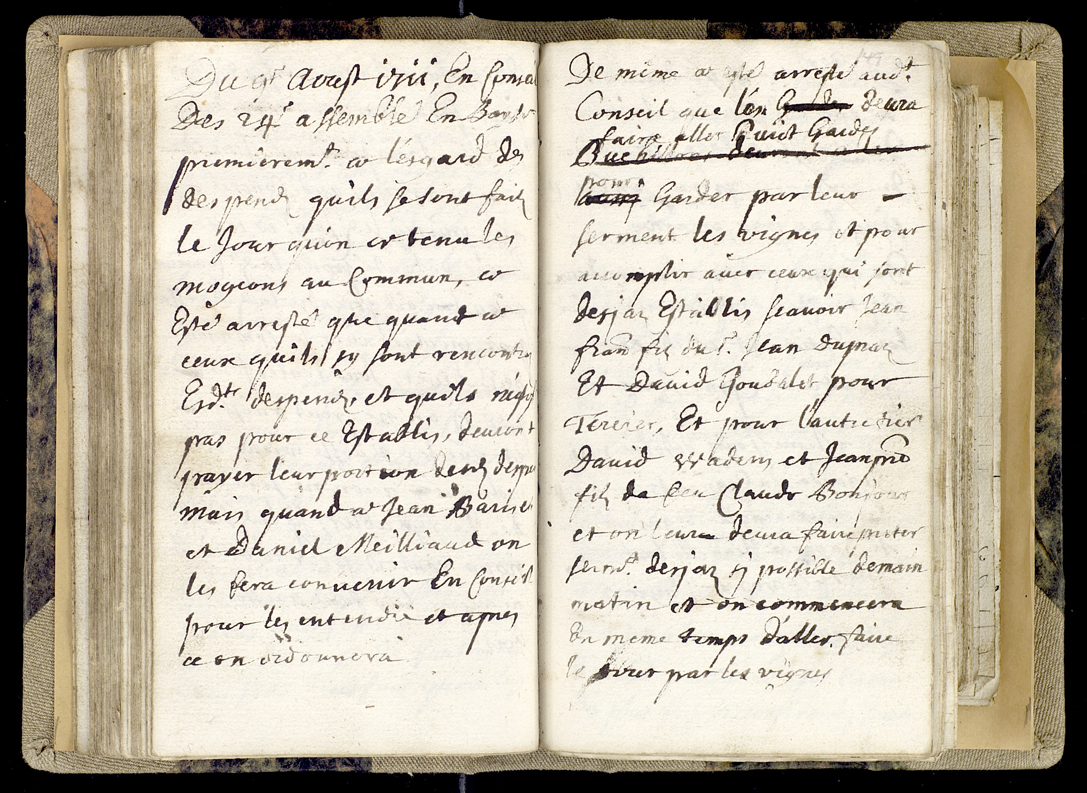 Du 9.e Aoust 1711, En Conseil
Des 24.e assemblé En
premierem.t a lésgard des
despends quils se sont faits
le Jour quon a tenu les
moyeons au Commun, a
Esté arresté que quand a
ceux quils sy sont rencontrez
Esd.ts despends, et quils
pas pour ce Establis, devront
payer leur portion desd. despends
mais quand a Jean Barise
et Daniel Meilliaud on
les fera convenir En Conseil
pour les entendre et apres
ce on ordonnera
De mime a esté arresté aud.t
Conseil que l'on Gardes devra
faire aller huict Gardes
devront aller
pour
Garder par leur —
serment les vignes et pour
accomplir avec ceux qui sont
desjaz Establis scavoir Jean
fran fils du S.r Jean Dupnaz
Et David Goudalet pour
Tercier, Et pour l'autre tier
David et Jeanfrs
fils de feu Claude Bonjour
et on leur devra faire preter
serm.t desjaz sy possible demain
matin et on commencera
En meme temps d'aller faire
le tour par les vignes